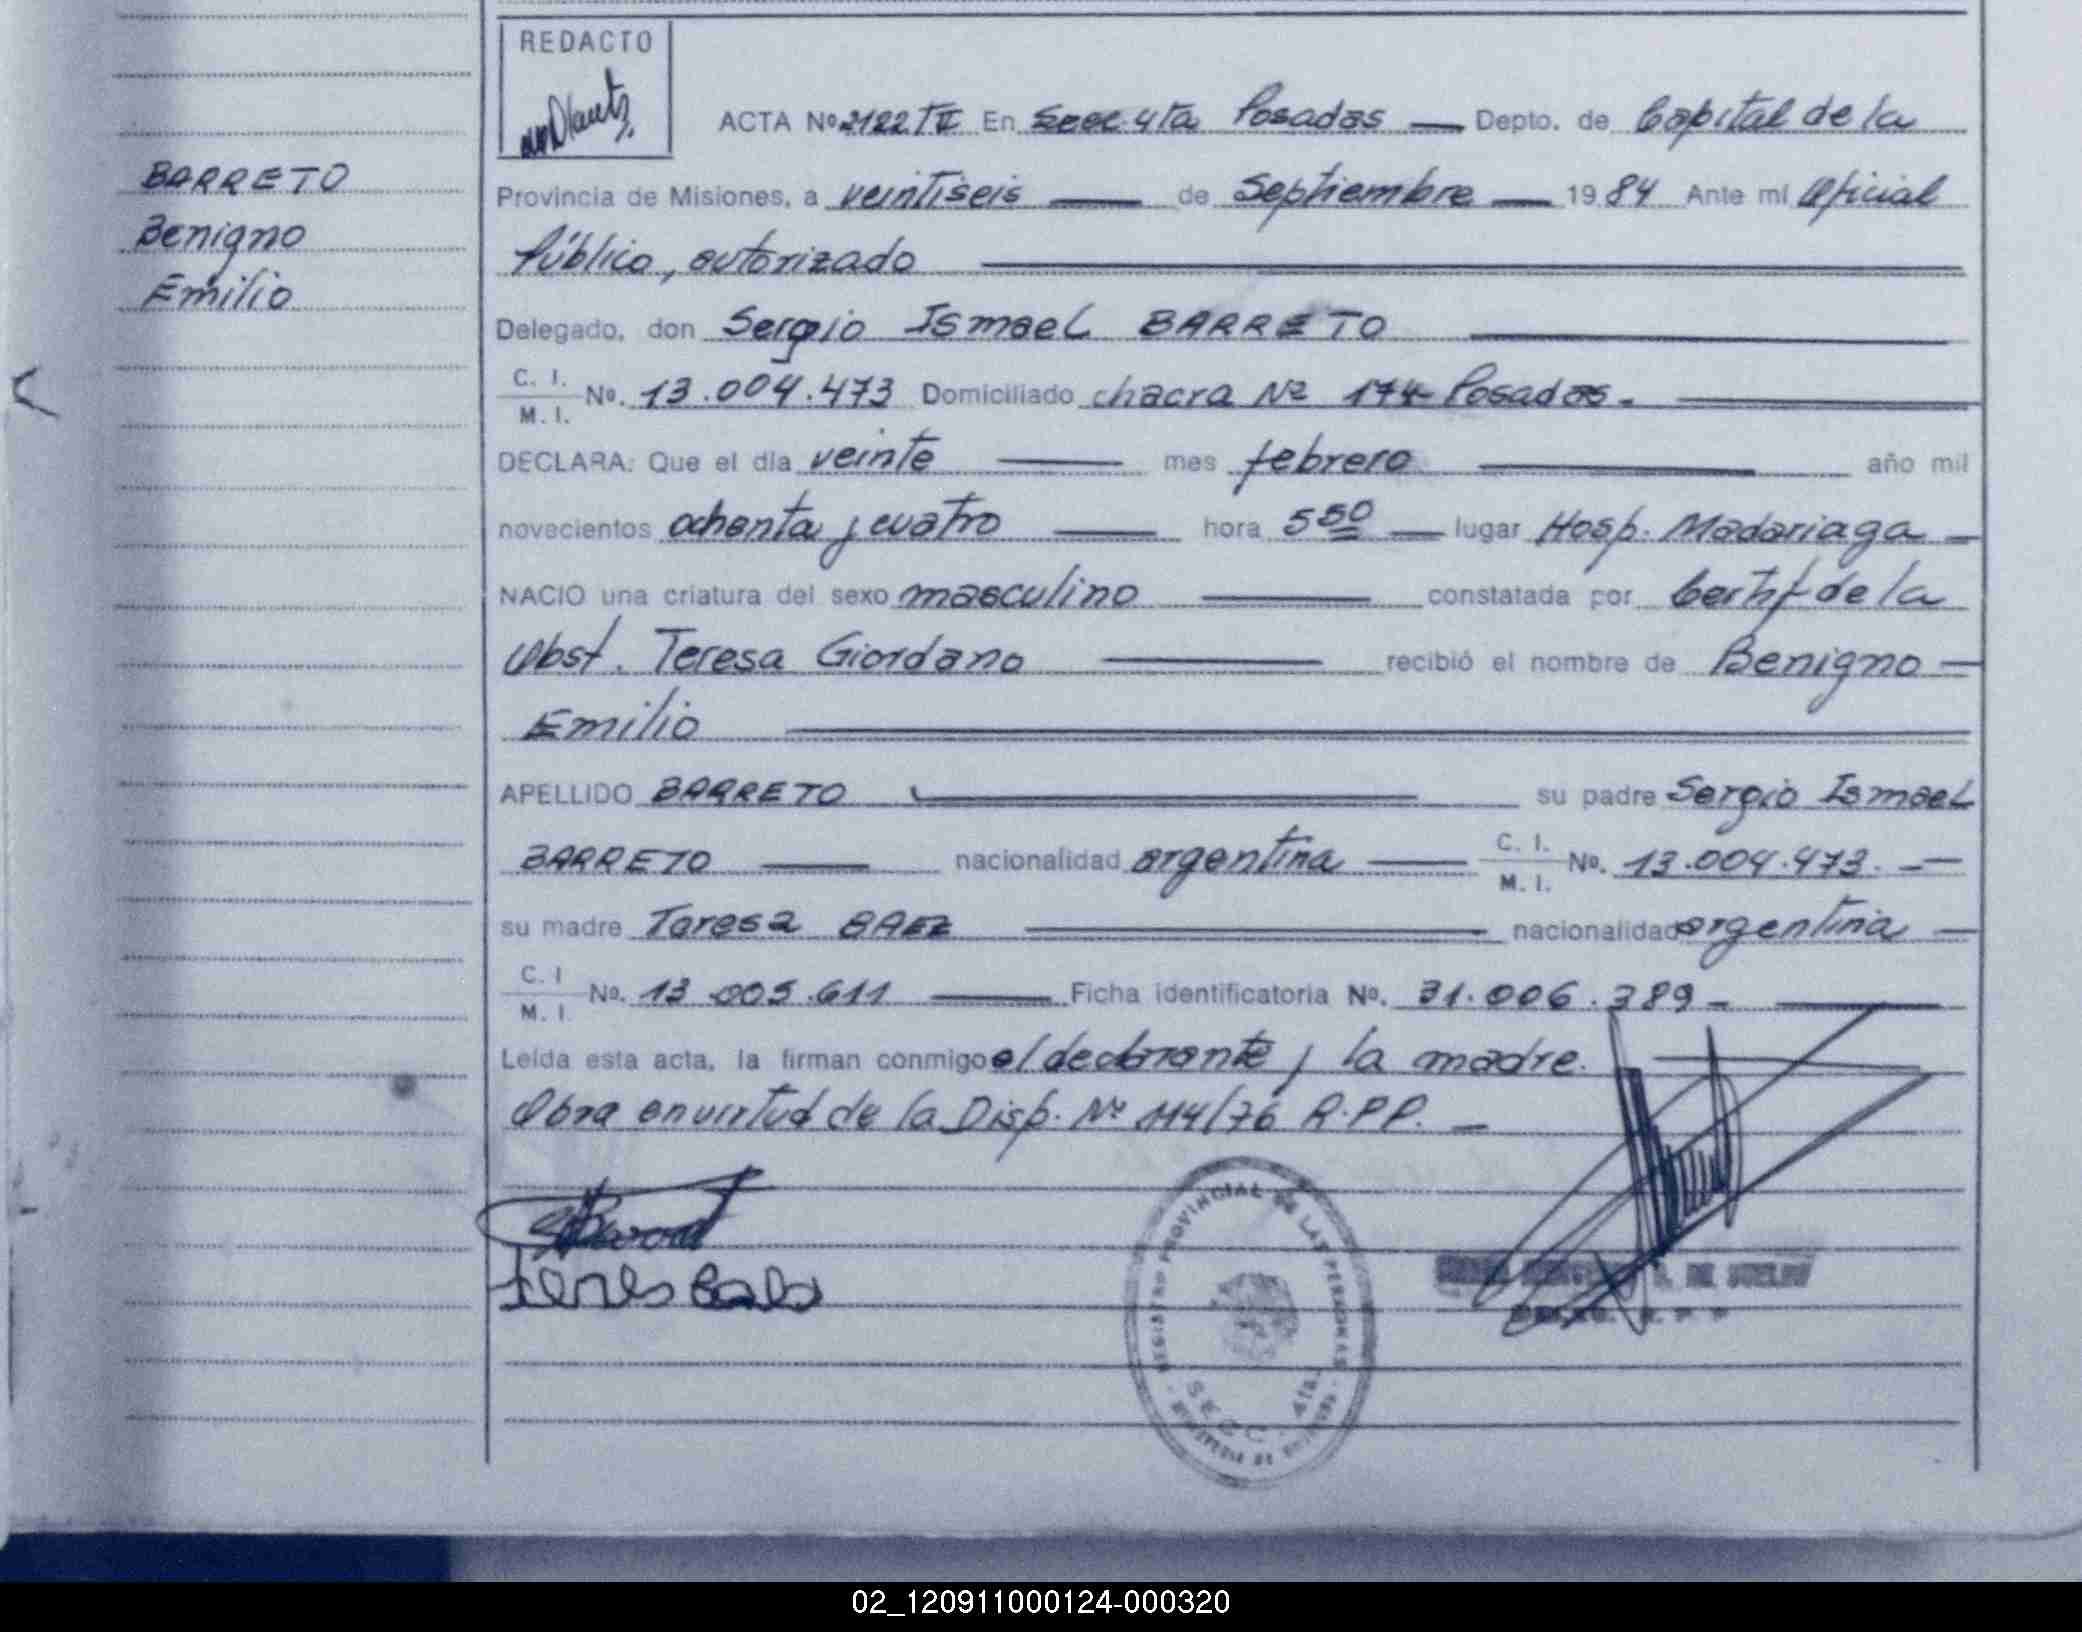 REDACTO
ACTA Nº 2122 TV En Secc 4ta Posadas — Depto. de Capital de la
BARRETO
Benigno
Emilio
Provincia de Misiones, a veintiseis — de Septiembre — 1984 Ante mí Oficial
Público, autorizado
Delegado, don Sergio Ismael BARRETO
C. I. M. I. Nº. 13.004.473 Domiciliado chacra Nº 174 Posadas.
DECLARA: Que el día veinte — mes febrero — año mil
novecientos ochenta y cuatro — hora 5 50 — lugar Hosp. Madariaga —
NACIO una criatura del sexo masculino — constatada por Certif de la
Obst. Teresa Giordano — recibió el nombre de Benigno —
Emilio
APELLIDO BARRETO — su padre Sergio Ismael
BARRETO — nacionalidad argentina — C. I. M. I. Nº. 13.004.473. —
su madre Teresa BAEZ — nacionalidad argentina —
C. I M. I. Nº. 13.005.611 — Ficha identificatoria Nº. 31.006.389 —
Leída esta acta, la firman conmigo el declarante y la madre.
Obra en virtud de la Disp. Nº 114/76 R.P.P. —
REGISTRO PROVINCIAL DE LAS PERSONAS
SECC. 4ta.
02_120911000124-000320